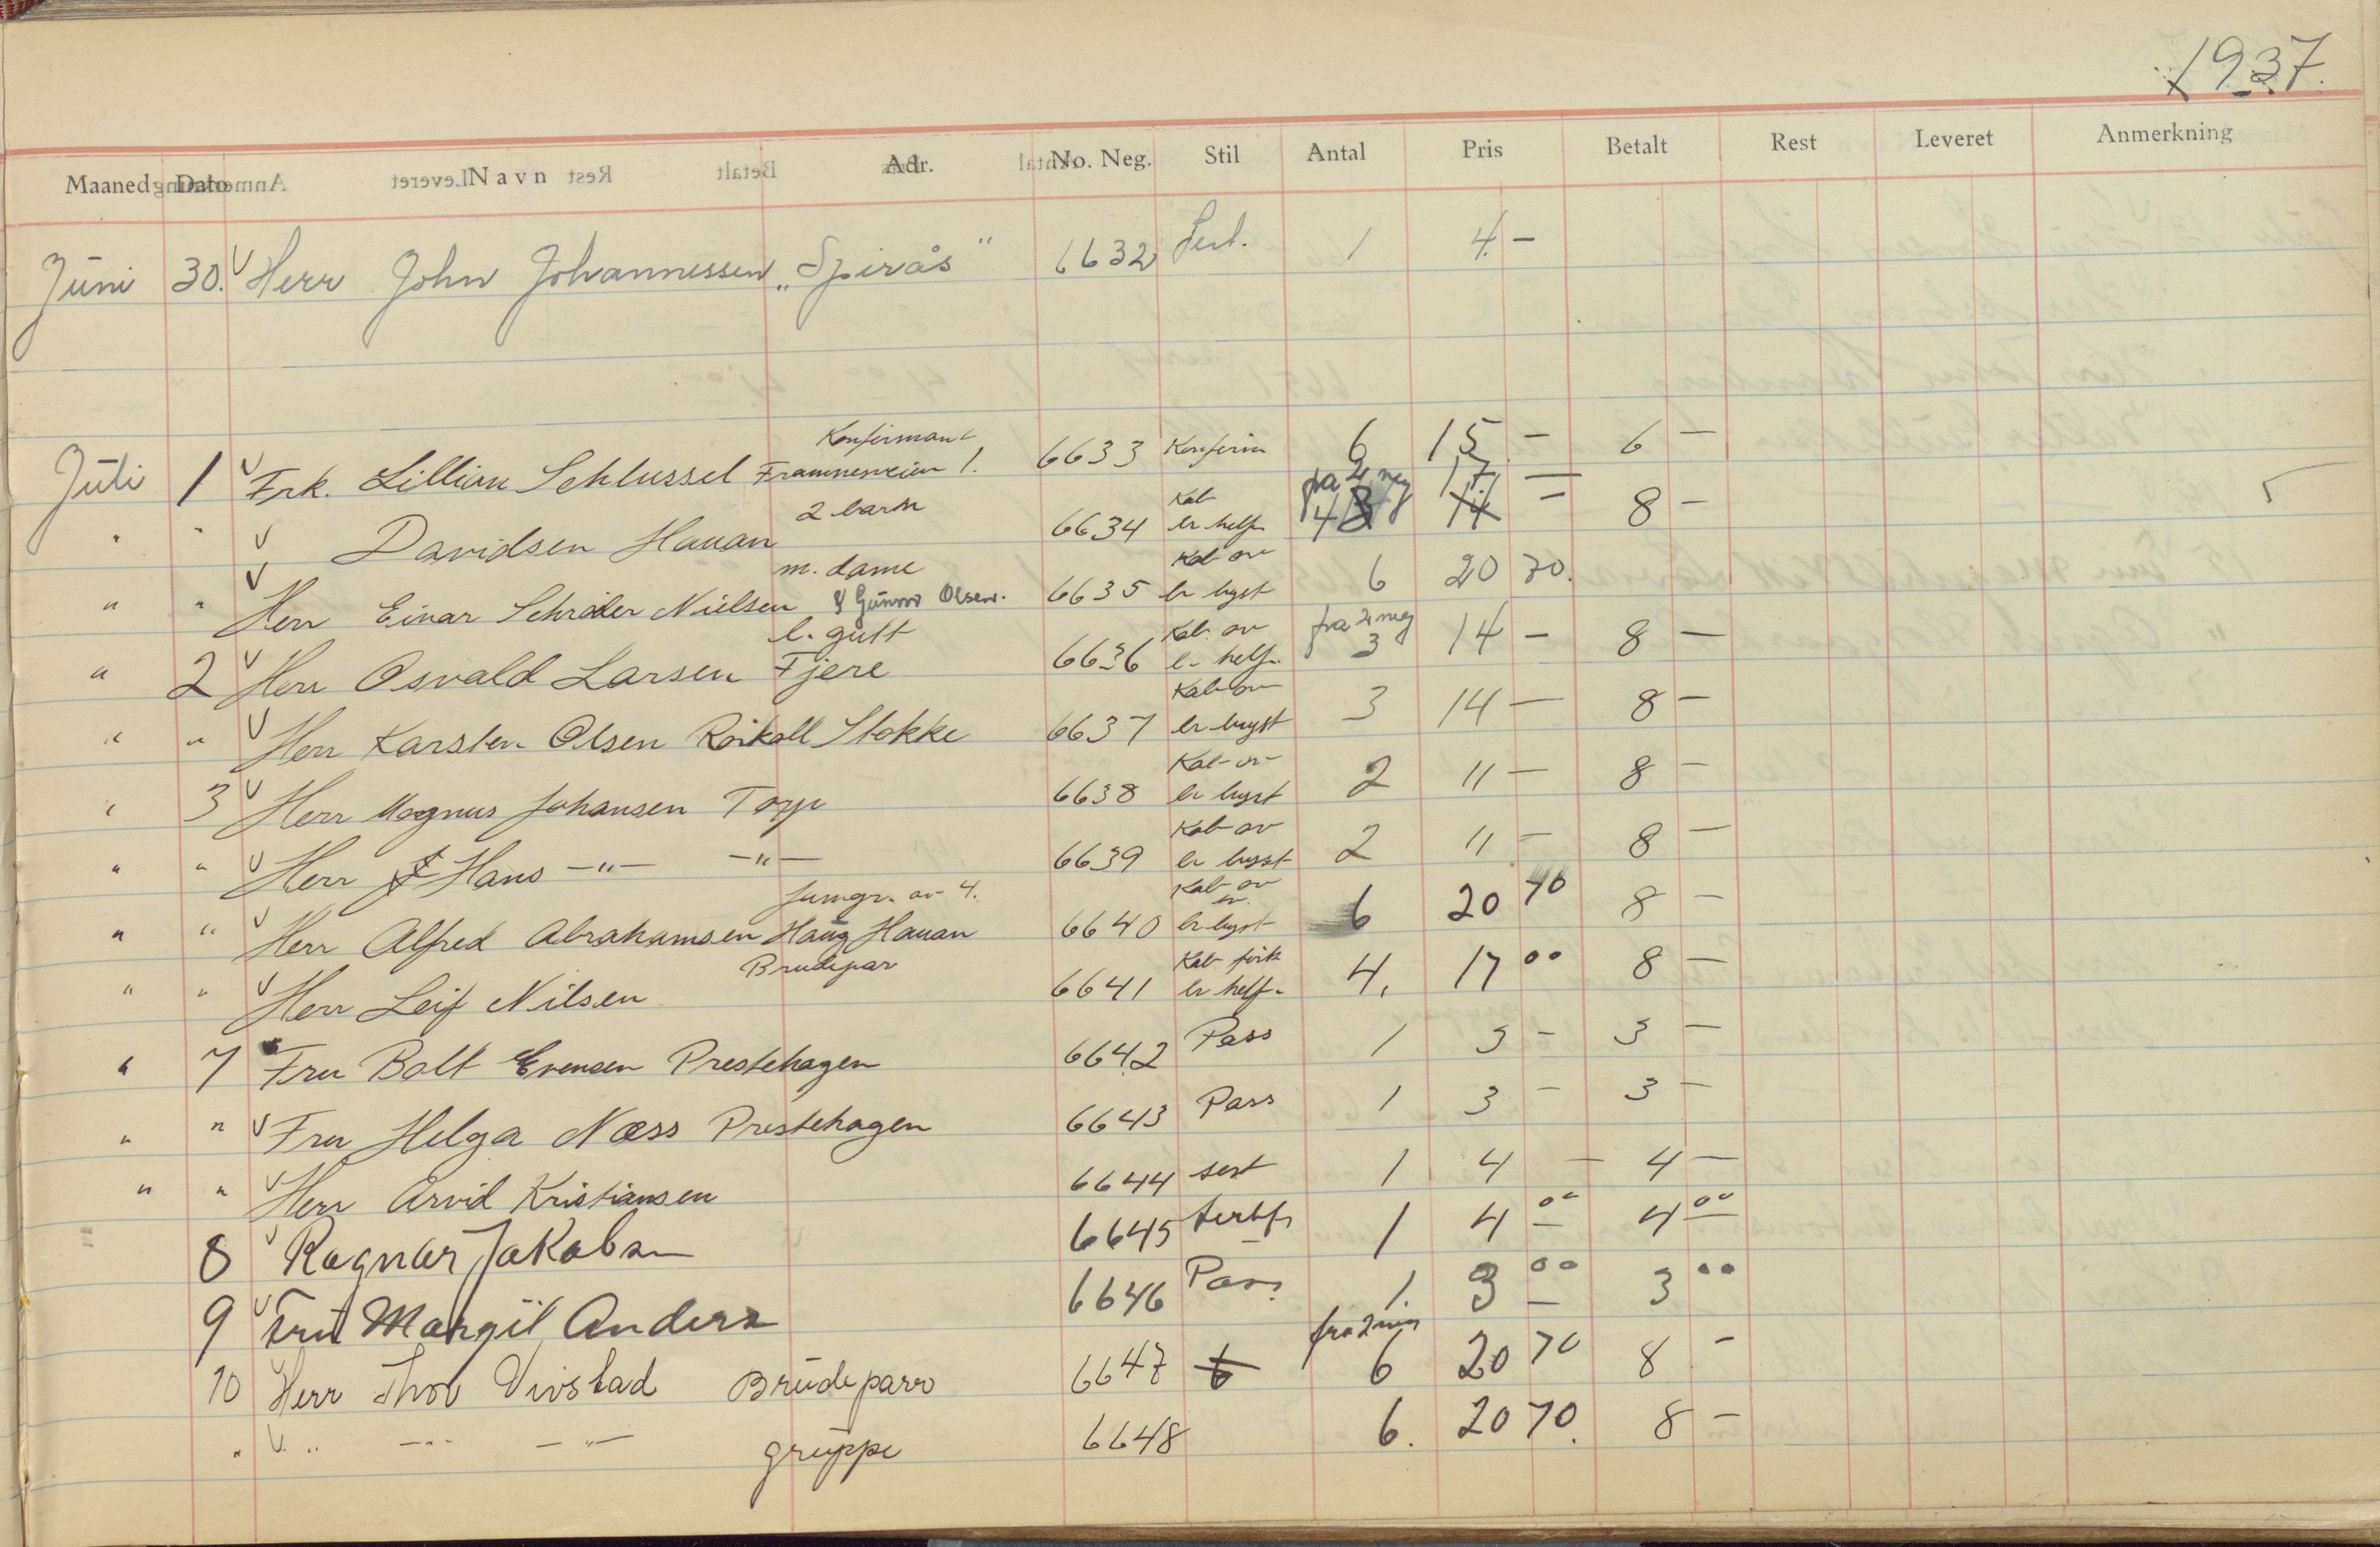 1937.
Maaned Dato Navn Adr. No. Neg. Stil Antal Pris Betalt Rest Leveret Anmerkning
Juni 30. V Herr John Johannessen „Spirås" 6632 Sert. 1 4. —
Konfirmant
Juli 1 V Frk. Lillian Schlussel Framnesveien 1. 6633 Konfirm 6 15 — 6 —
2 barn Kab fra 2 neg 17 —
" " V Davidsen Hauan 6634 er helf. 4 3 14 — 8 —
m. dame Kab av
" " V Herr Einar Schrøder Nielsen & Gunvor Olsen. 6635 er byst 6 20 70.
l. gutt Kab. av fra 2 neg
" 2 V Herr Osvald Larsen Fjere 6636 er helf. 3 14 — 8 —
Kab av
" " V Herr Karsten Olsen Stokke 6637 er byst 3 14 — 8 —
Kab av
" 3 V Herr Magnus Johansen Torp 6638 er byst 2 11 — 8 —
Kab av
" " V Herr Hans —"— —"— 6639 er byst 2 11 — 8 —
famgr. av 4. Kab av
" " V Herr Alfred Abrahamsen Haug Hauan 6640 er byst 6 20 70 8 —
Brudepar Kab
" " V Herr Leif Nilsen 6641 er helf. 4. 17 00 8 —
" 7 Fru Bolt Evensen Prestehagen 6642 Pass 1 3 — 3 —
" " V Fru Helga Næss Prestehagen 6643 Pass 1 3 — 3 —
" " V Herr Arvid Kristiansen 6644 sert 1 4 — 4 —
8 V Ragnar Jakobsn 6645 1 4 00 4 00
9 V Fru Margit Anders 6646 Pass. 1. 3 00 3 00
fra 2 neg
10 V Herr Thor Vivstad Brudeparr 6647 6 20 70 8 —
" V. " —"— —"— gruppe 6648 6. 20 70. 8 —